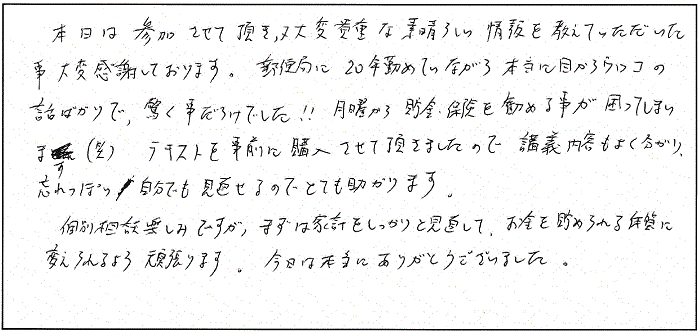 本日は参加させて頂き、又大変貴重な素晴らしい情報を教えていただいた
事大変感謝しております。郵便局に20年勤めていながら本当に目からウロコの
話ばかりで、驚く事だらけでした!! 月曜から貯金・保険を勧める事が困ってしまい
ます(笑) テキストを事前に購入させて頂きましたので講義内容もよく分かり、
忘れっぽい自分でも見直せるのでとても助かります。
個別相談楽しみですが、まずは家計をしっかりと見直して、お金を貯められる体質に
変えられるよう頑張ります。今日は本当にありがとうございました。